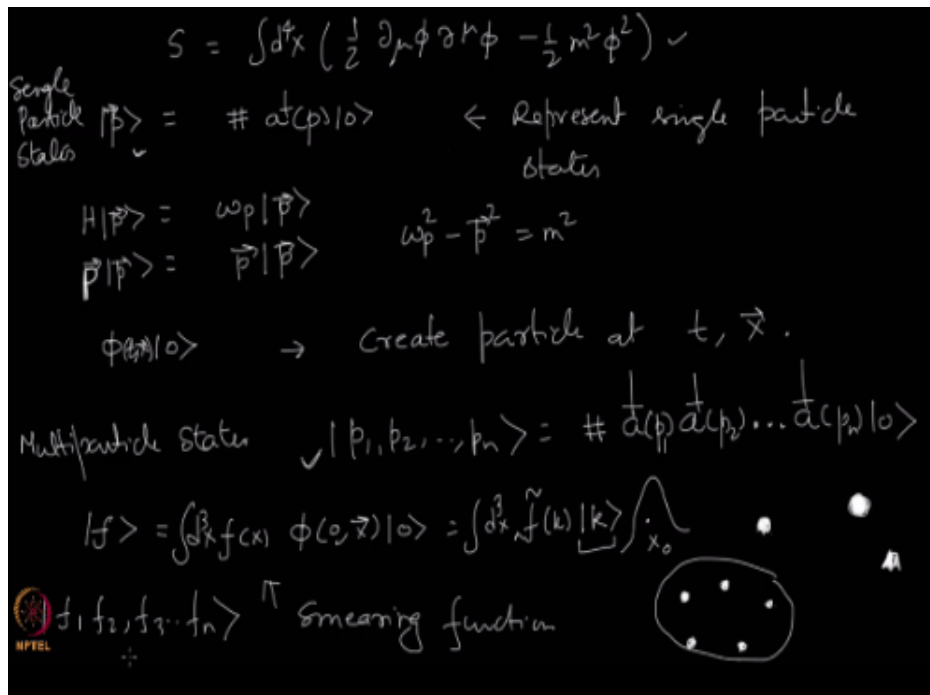 S = ∫d⁴x ( ½ ∂μϕ ∂^μϕ − ½ m²ϕ² ) ✓
Single
Particle |p⃗> = # a†(p)|0> ← Represent single particle
States states
H|p⃗> = ωp|p⃗>
ωp² − p⃗² = m²
p⃗|p⃗> = p⃗|p⃗>
ϕ(t,x⃗)|0> → Create particle at t, x⃗.
Multiparticle States ✓|p₁,p₂,..,pn> = # a†(p₁)a†(p₂)...a†(pn)|0>
|f> = ∫d³x f(x) ϕ(0,x⃗)|0> = ∫d³x f̃(k) |k>
x₀
|f₁ f₂, f₃..fn> ↑ Smearing function
NPTEL